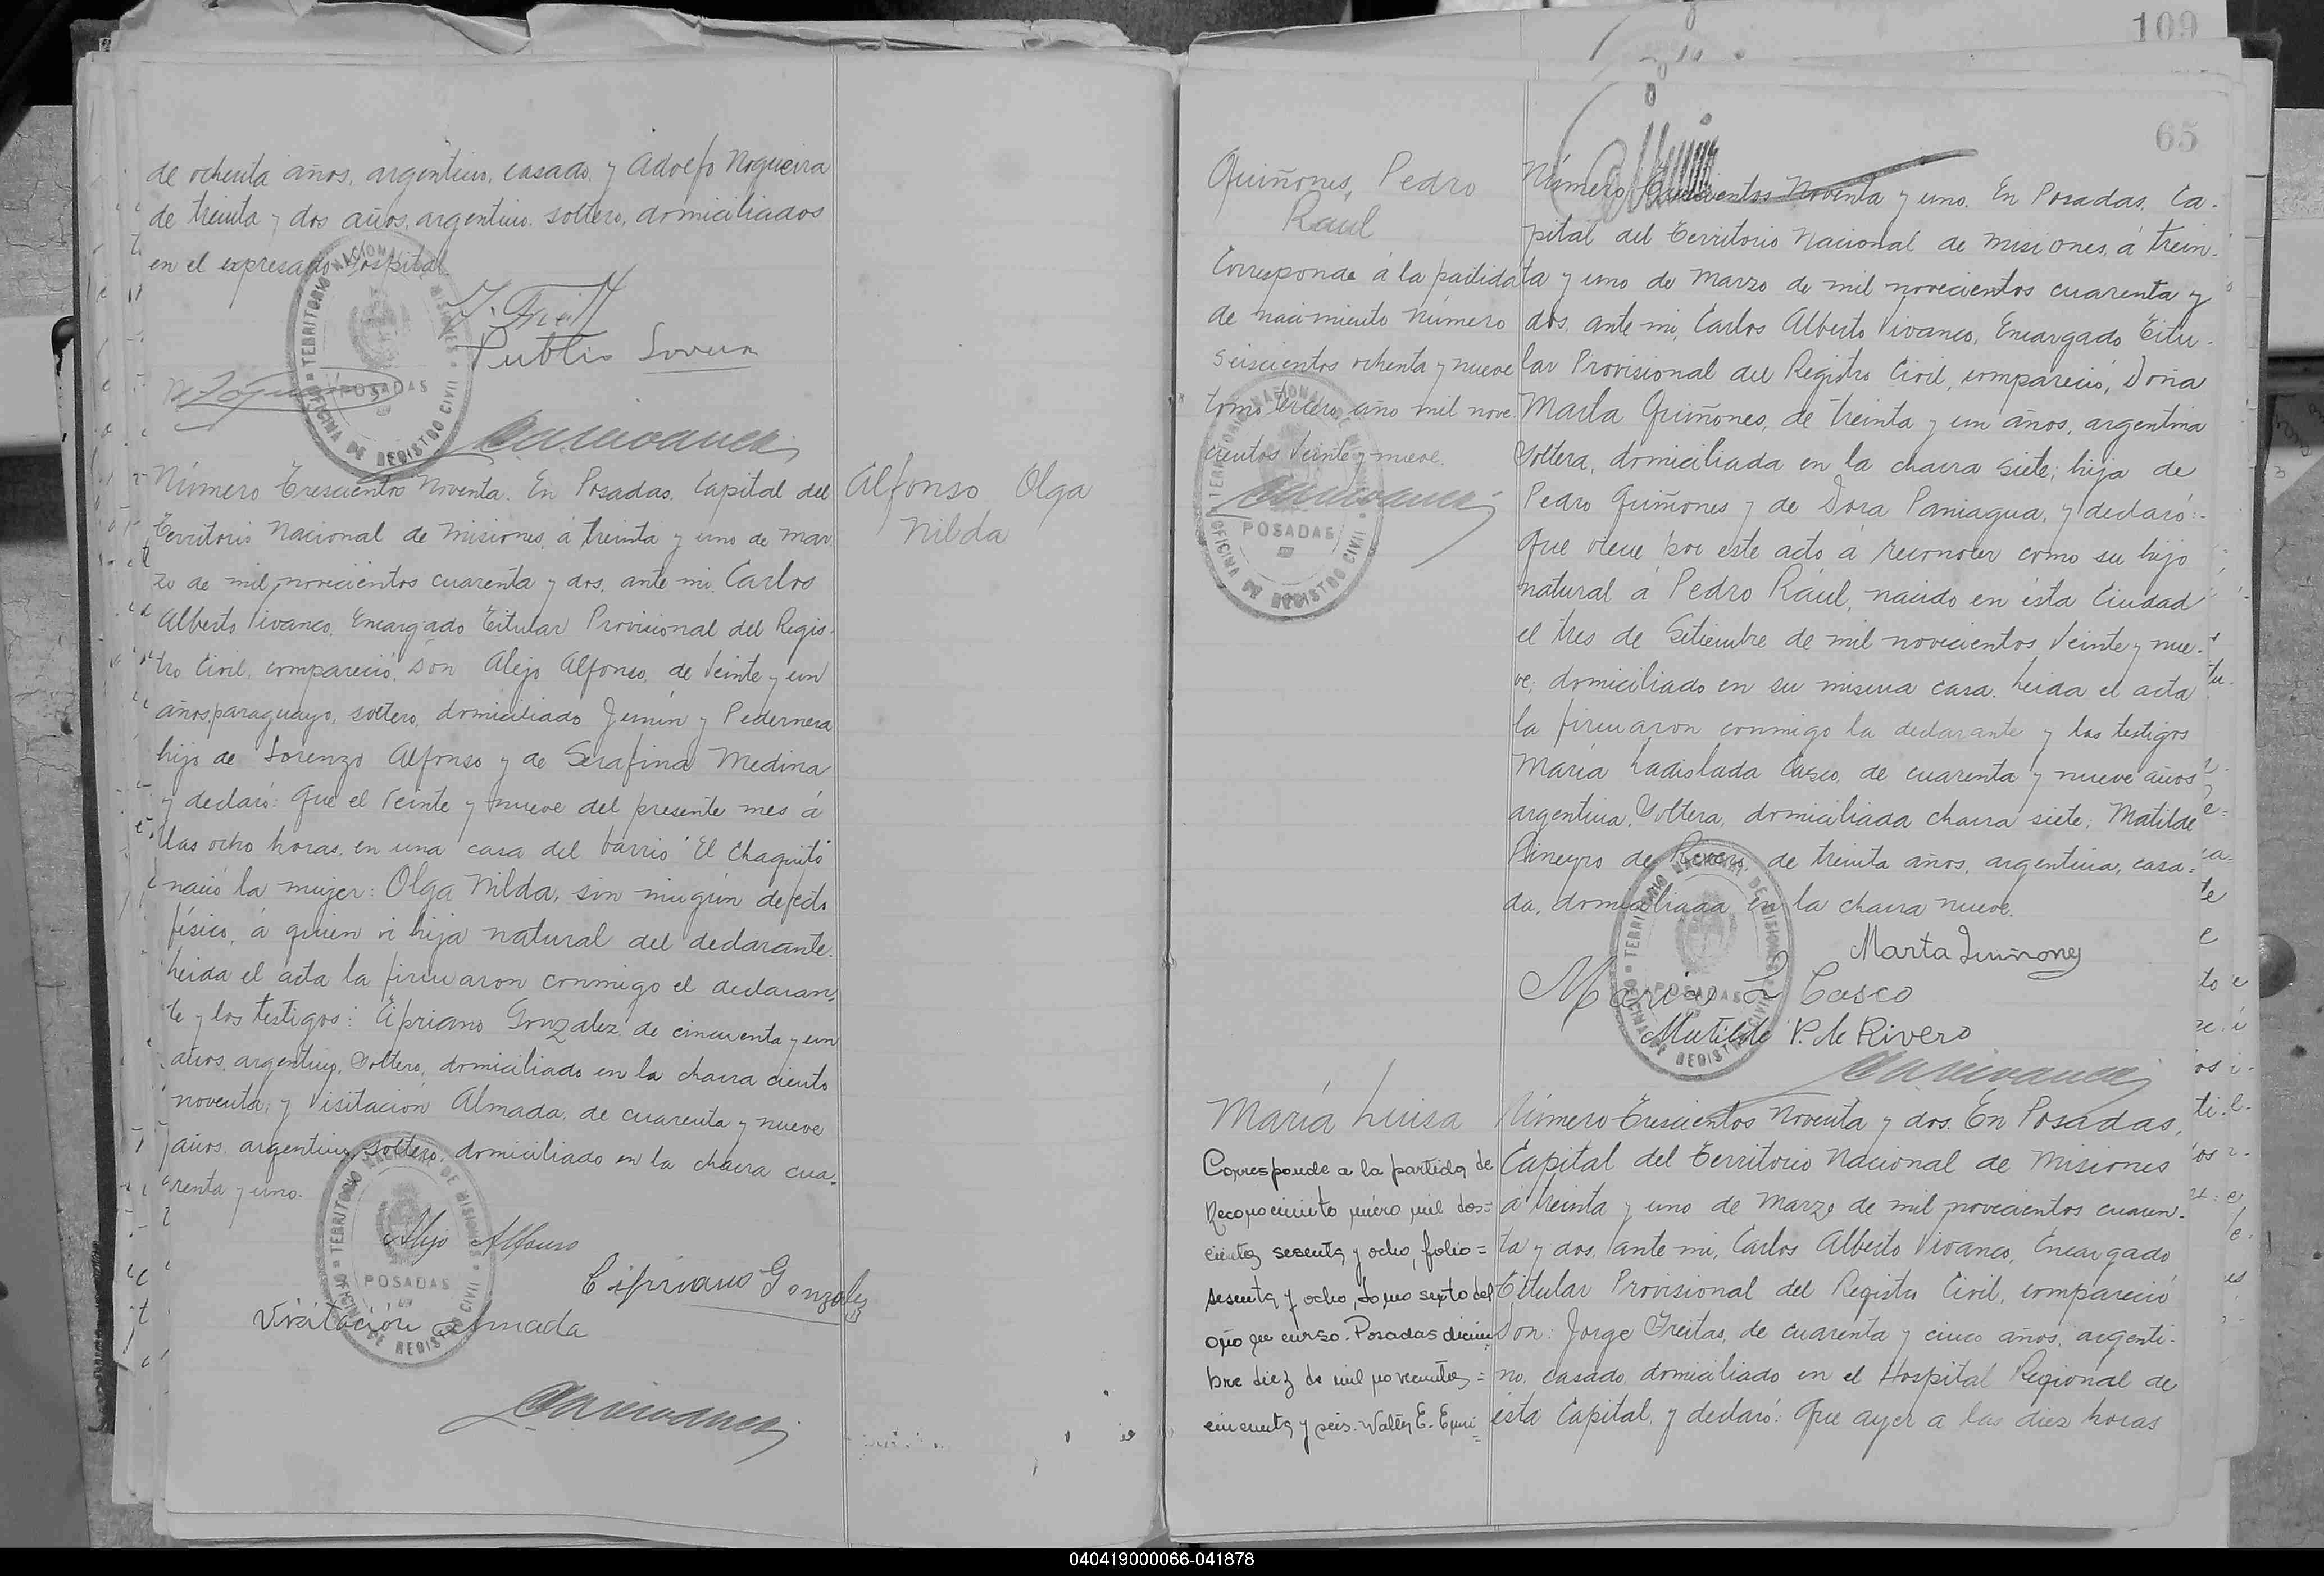 de ochenta años, argentino, casado, y Adolfo Nogueira
de treinta y dos años, argentino, soltero, domiciliados
en el expresado Hospital.
TERRITORIO NACIONAL DE MISIONES
POSADAS
OFICINA DE REGISTRO CIVIL
Número Trescientos Noventa. En Posadas, Capital del
Territorio Nacional de Misiones, á treinta y uno de Mar
zo de mil novecientos cuarenta y dos, ante mi, Carlos
Alberto Vivanco, Encargado Titular Provisional del Regis-
tro Civil, compareció, Don Alejo Alfonso, de veinte y un
años, paraguayo, soltero, domiciliado Junin y Pedernera
hijo de Lorenzo Alfonso y de Serafina Medina
y declaró: Que el veinte y nueve del presente mes á
las ocho horas, en una casa del barrio "El Chaquito"
nació la mujer: Olga Nilda, sin ningún defecto
físico, á quien vi hija natural del declarante.
Leida el acta la firmaron conmigo el declaran-
te y los testigos: Cipriano Gonzalez, de cincuenta y un
años, argentino, soltero, domiciliado en la chacra ciento
noventa, y Visitación Almada, de cuarenta y nueve
años, argentino, soltero, domiciliado en la chacra cua-
renta y uno.
Alejo Alfonso
Cipriano Gonzalez
Visitación Almada
TERRITORIO NACIONAL DE MISIONES
POSADAS
OFICINA DE REGISTRO CIVIL
Alfonso Olga
Nilda
109
65
Quiñones, Pedro
Raúl
Corresponde á la partida
de nacimiento número
seiscientos ochenta y nueve
tomo tercero, año mil nove
cientos veinte y nueve.
TERRITORIO NACIONAL DE MISIONES
POSADAS
OFICINA DE REGISTRO CIVIL
Número Trescientos Noventa y uno. En Posadas, Ca-
pital del Territorio Nacional de Misiones, á trein-
ta y uno de Marzo de mil novecientos cuarenta y
dos, ante mi, Carlos Alberto Vivanco, Encargado Titu-
lar Provisional del Registro Civil, compareció, Doña
Marta Quiñones, de treinta y un años, argentina
soltera, domiciliada en la chacra siete; hija de
Pedro Quiñones y de Dora Paniagua, y declaró:-
Que viene por este acto á reconocer como su hijo
natural á Pedro Raúl, nacido en ésta Ciudad
el tres de Setiembre de mil novecientos veinte y nue-
ve; domiciliado en su misma casa. Leida el acta
la firmaron conmigo la declarante y los testigos
María Ladislada Casco, de cuarenta y nueve años
argentina, soltera, domiciliada chacra siete; Matilde
Pineyro de Rivero, de treinta años, argentina, casa-
da, domiciliada en la chacra nueve.
Marta Quiñones
Maria L Casco
Matilde P. de Rivero
TERRITORIO NACIONAL DE MISIONES
POSADAS
OFICINA DE REGISTRO CIVIL
María Luisa
Corresponde a la partida de
Reconocimiento número mil dos=
cientos sesenta y ocho, folio=
sesenta y ocho, tomo sexto del
año en curso. Posadas diciem
bre diez de mil novecientos=
cincuenta y seis. Walter E.
Número Trescientos Noventa y dos. En Posadas,
Capital del Territorio Nacional de Misiones
á treinta y uno de Marzo de mil novecientos cuaren-
ta y dos, ante mi, Carlos Alberto Vivanco, Encargado
Titular Provisional del Registro Civil, compareció
Don: Jorge Freitas, de cuarenta y cinco años, argenti-
no, casado, domiciliado en el Hospital Regional de
ésta Capital, y declaró: Que ayer a las diez horas
040419000066-041878